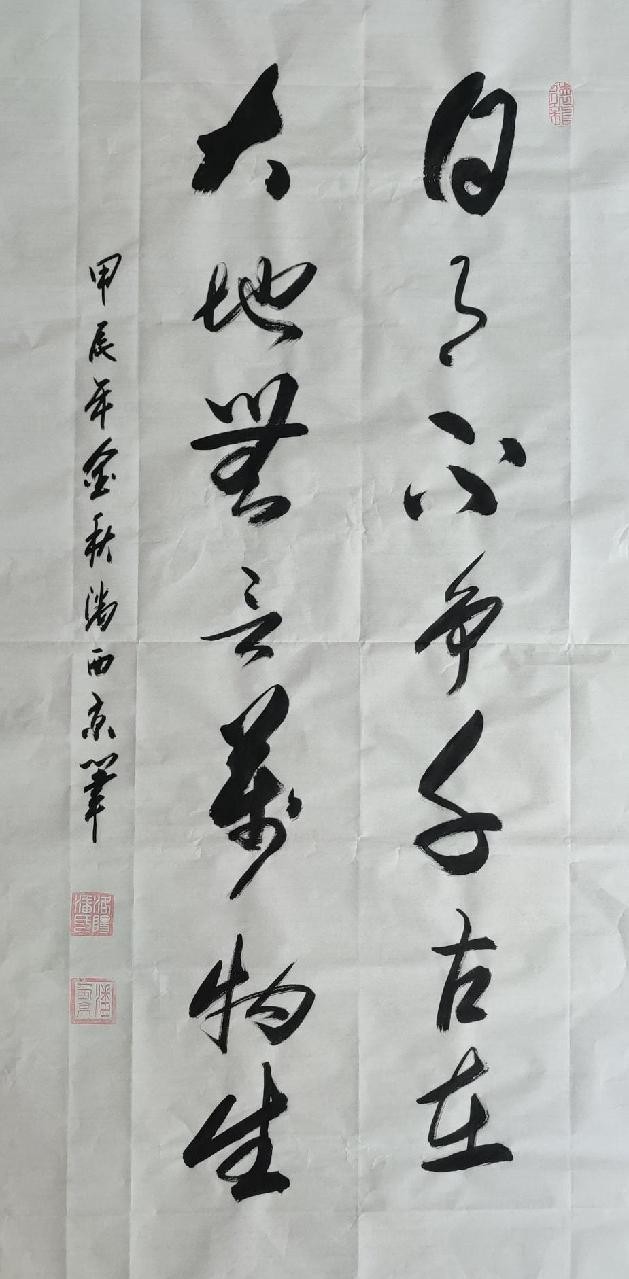 日月不争千古在
大地無言萬物生
甲辰年金秋潘西京筆